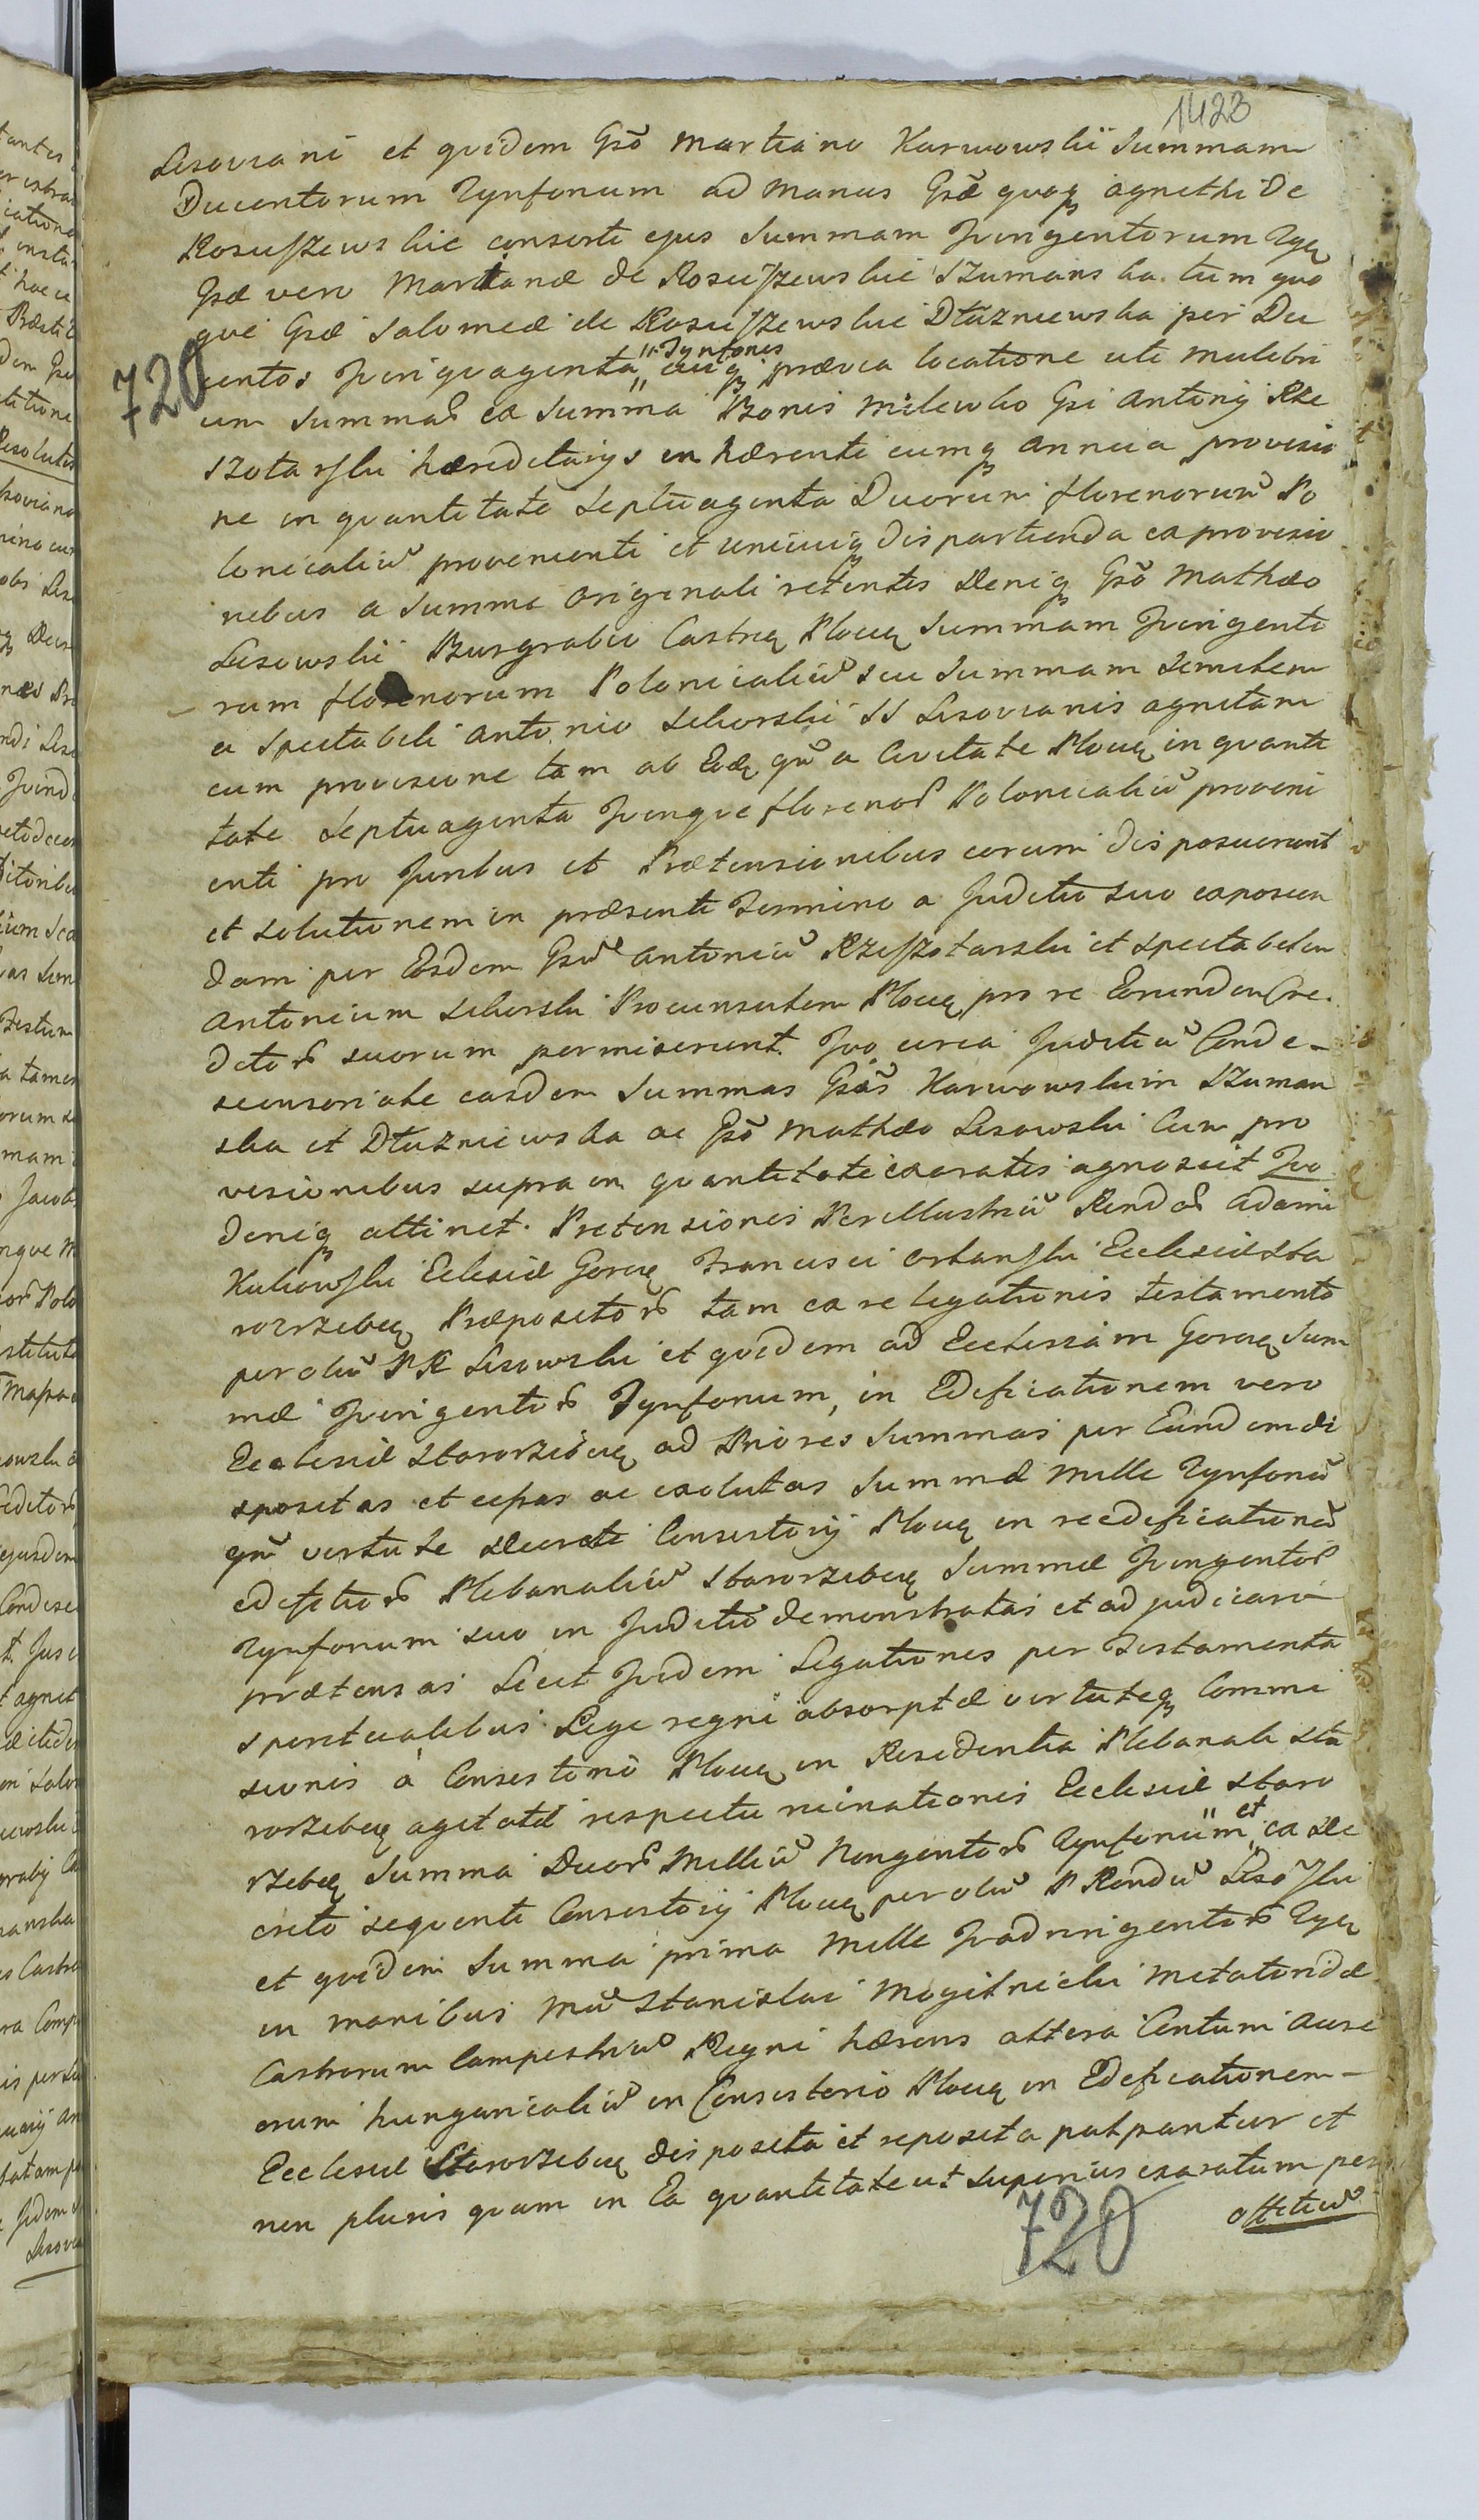 1423
Lisoviani et quidem Gsō Martiano Karwowskii Summam
Ducentorum Tynfonum ad manus Gsæ quoq agnethi de
Kosuszewskie consorti ejus Summam Quingentorum Tyq
Gsæ vero Martianæ de Kosuszewskie Szumanska. tum quo
que Gsæ Salomeæ de Kosuszewskie Dłuzniewska per Du
centos Quinquaginta "Tynfones cuiq prævia locatione uti mulebri
720
um Summaꝝ ex Summa Bonis Milewko Gsi Antonij Rze
szotarski hæreditarijs inhærenti cumq annua provisio
ne in quantitate Septuaginta Duorum florenorum Po
lonicaliū provenienti et unicuiq dispartienda ex provisio
nibus a Summa originali retentis Deniq Gsō Mathæo
Lisowskii Burgrabio Castrq Plocq Summam Quingento
rum florenorum Polonicaliū seu Summam Simitem
a Spectabili Antonio Sikorskii SS Lisovianis agnitam
cum provisione tam ab Eoq qm̄ a Civitate Plocq in quanti
tate Septuaginta Quinque florenoꝝ Polonicaliū proveni
enti pro Juribus et Prætensionibus eorum disposuerunt
et solutionem in præsenti Termino a Juditio suo exposcen
dam per Eosdem Gsū Antoniū Rzeszotarski et Spectabilem
Antonium Sikorski Proconsulem Plocq pro re Eorundem Cre
ditoꝝ suorum permiserunt. Quo circa Juditiū Conde-
scensoriale easdem Summas Gsās Karwowskiin Szuman
ska et Dłuzniewska ac Gsō Mathæo Lisowski Cum pro
visionibus supra in quantitate exaratis agnoscit Quo
deniq attinet. Pretensiones Perillustriū Rendoꝝ Adami
Kukowski Eclesiæ Gorcq Francisci Orkanski Ecclesiæ Sta
rorzebcq Præpositoꝝ tam ex re legationis testamento
per olim PR Lisowski et quidem ad Ecclesiam Gorcq Sum
mæ Quingentoꝝ Tynfonum, in Edificationem vero
Ecclesiæ Starorzebcq ad Priores Summas per Eundem di
spositas et ceptas ac exolutas Summæ Mille Tynfonū
qm̄ virtute Decreti Consistorij Plocq in reedificationē
edifitioꝝ Plebanaliū Starorzebcq Summæ Quingentoꝝ
Tynfonum suo in Juditio demonstratas et adjudicari
prætensas Licet Quidem Legationes per Testamenta
spiritualibus Lege regni absorptæ virtuteq Commi
sionis à Consistorio Plocq in Residentia Plebanali Sta
rorzebcq agitatæ respectu ruinationis Ecclesiæ Staro
rzebcq Summa Duoꝝ Milliū Nongentoꝝ Tynfonum " et ex De
creto sequenti Consistorij Plocq per olim PRendū Lisowski
et quidem Summa prima Mille Quadringentoꝝ Tyq
in manibus Mci Stanislai Mogilnicki Metatoridæ
Castrorum Campestriū Regni hærens altera Centum Aure
orum hungaricaliū in Consistorio Plocq in Edificationem-
Ecclesiæ Starorzebcq disposita et reposita patpantur et
non pluris quam in Ea quantitate ut superius exaratum per
offitiū
720